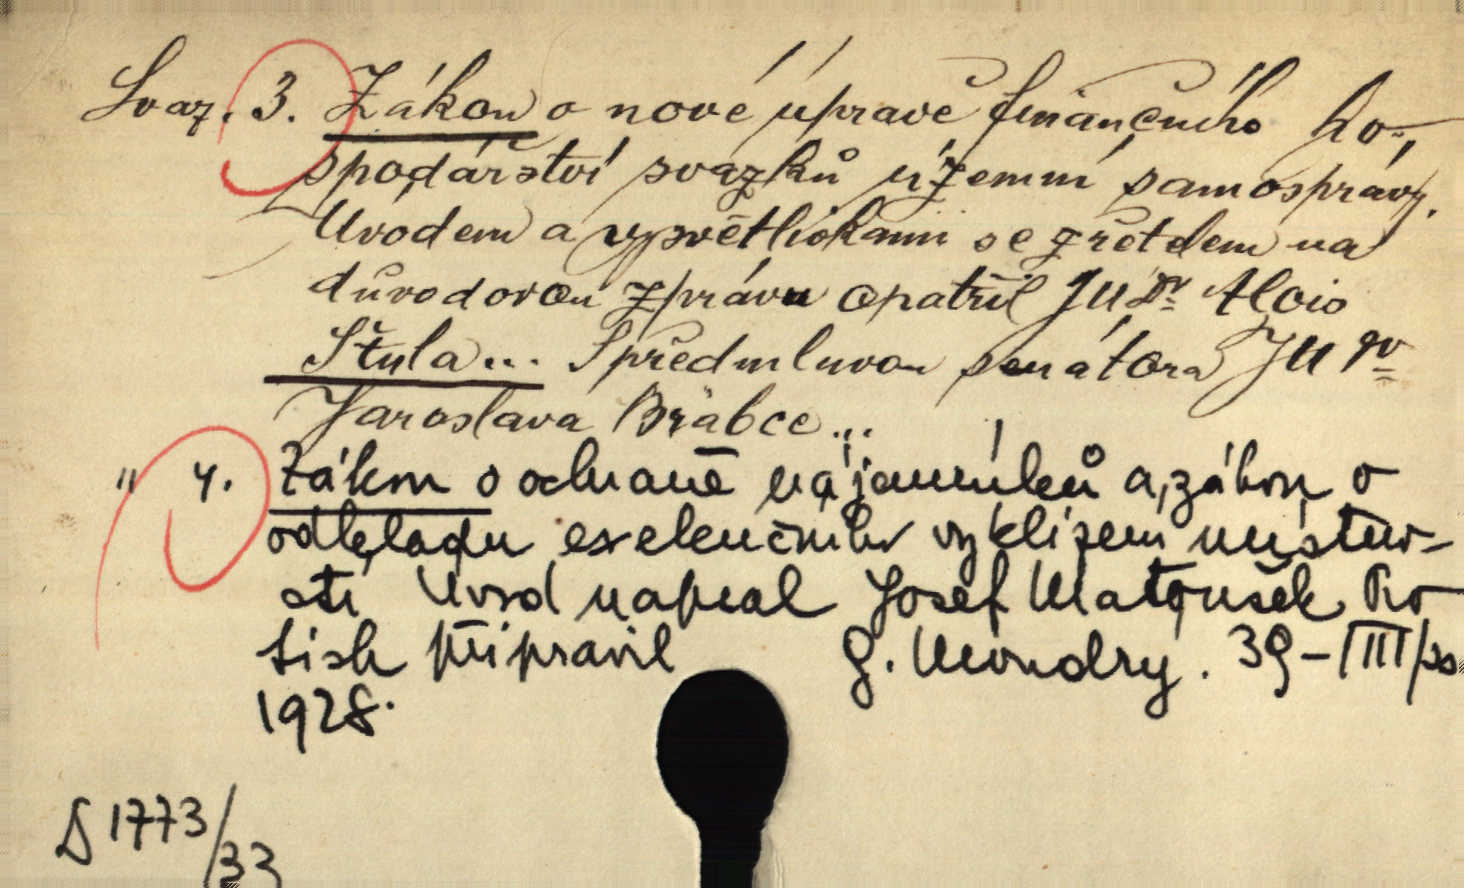 Svaz. 3. Zákon o nové úpravě finančního ho-
spodářství svazků územní samosprávy.
Úvodem a vysvětlivkami se zřetelem na
důvodovou zprávu opatřil JUDr Alois
Štula... S předmluvou senátora JUDr
Jaroslava Brabce...
" 4. Zákon o ochraně nájemníků a zákon o
odkladu exekučního vyklizení místno-
sti Úvod napsal Josef Matoušek K
tisku připravil J. Moudrý. 39-III/
1928.
D 1773/33